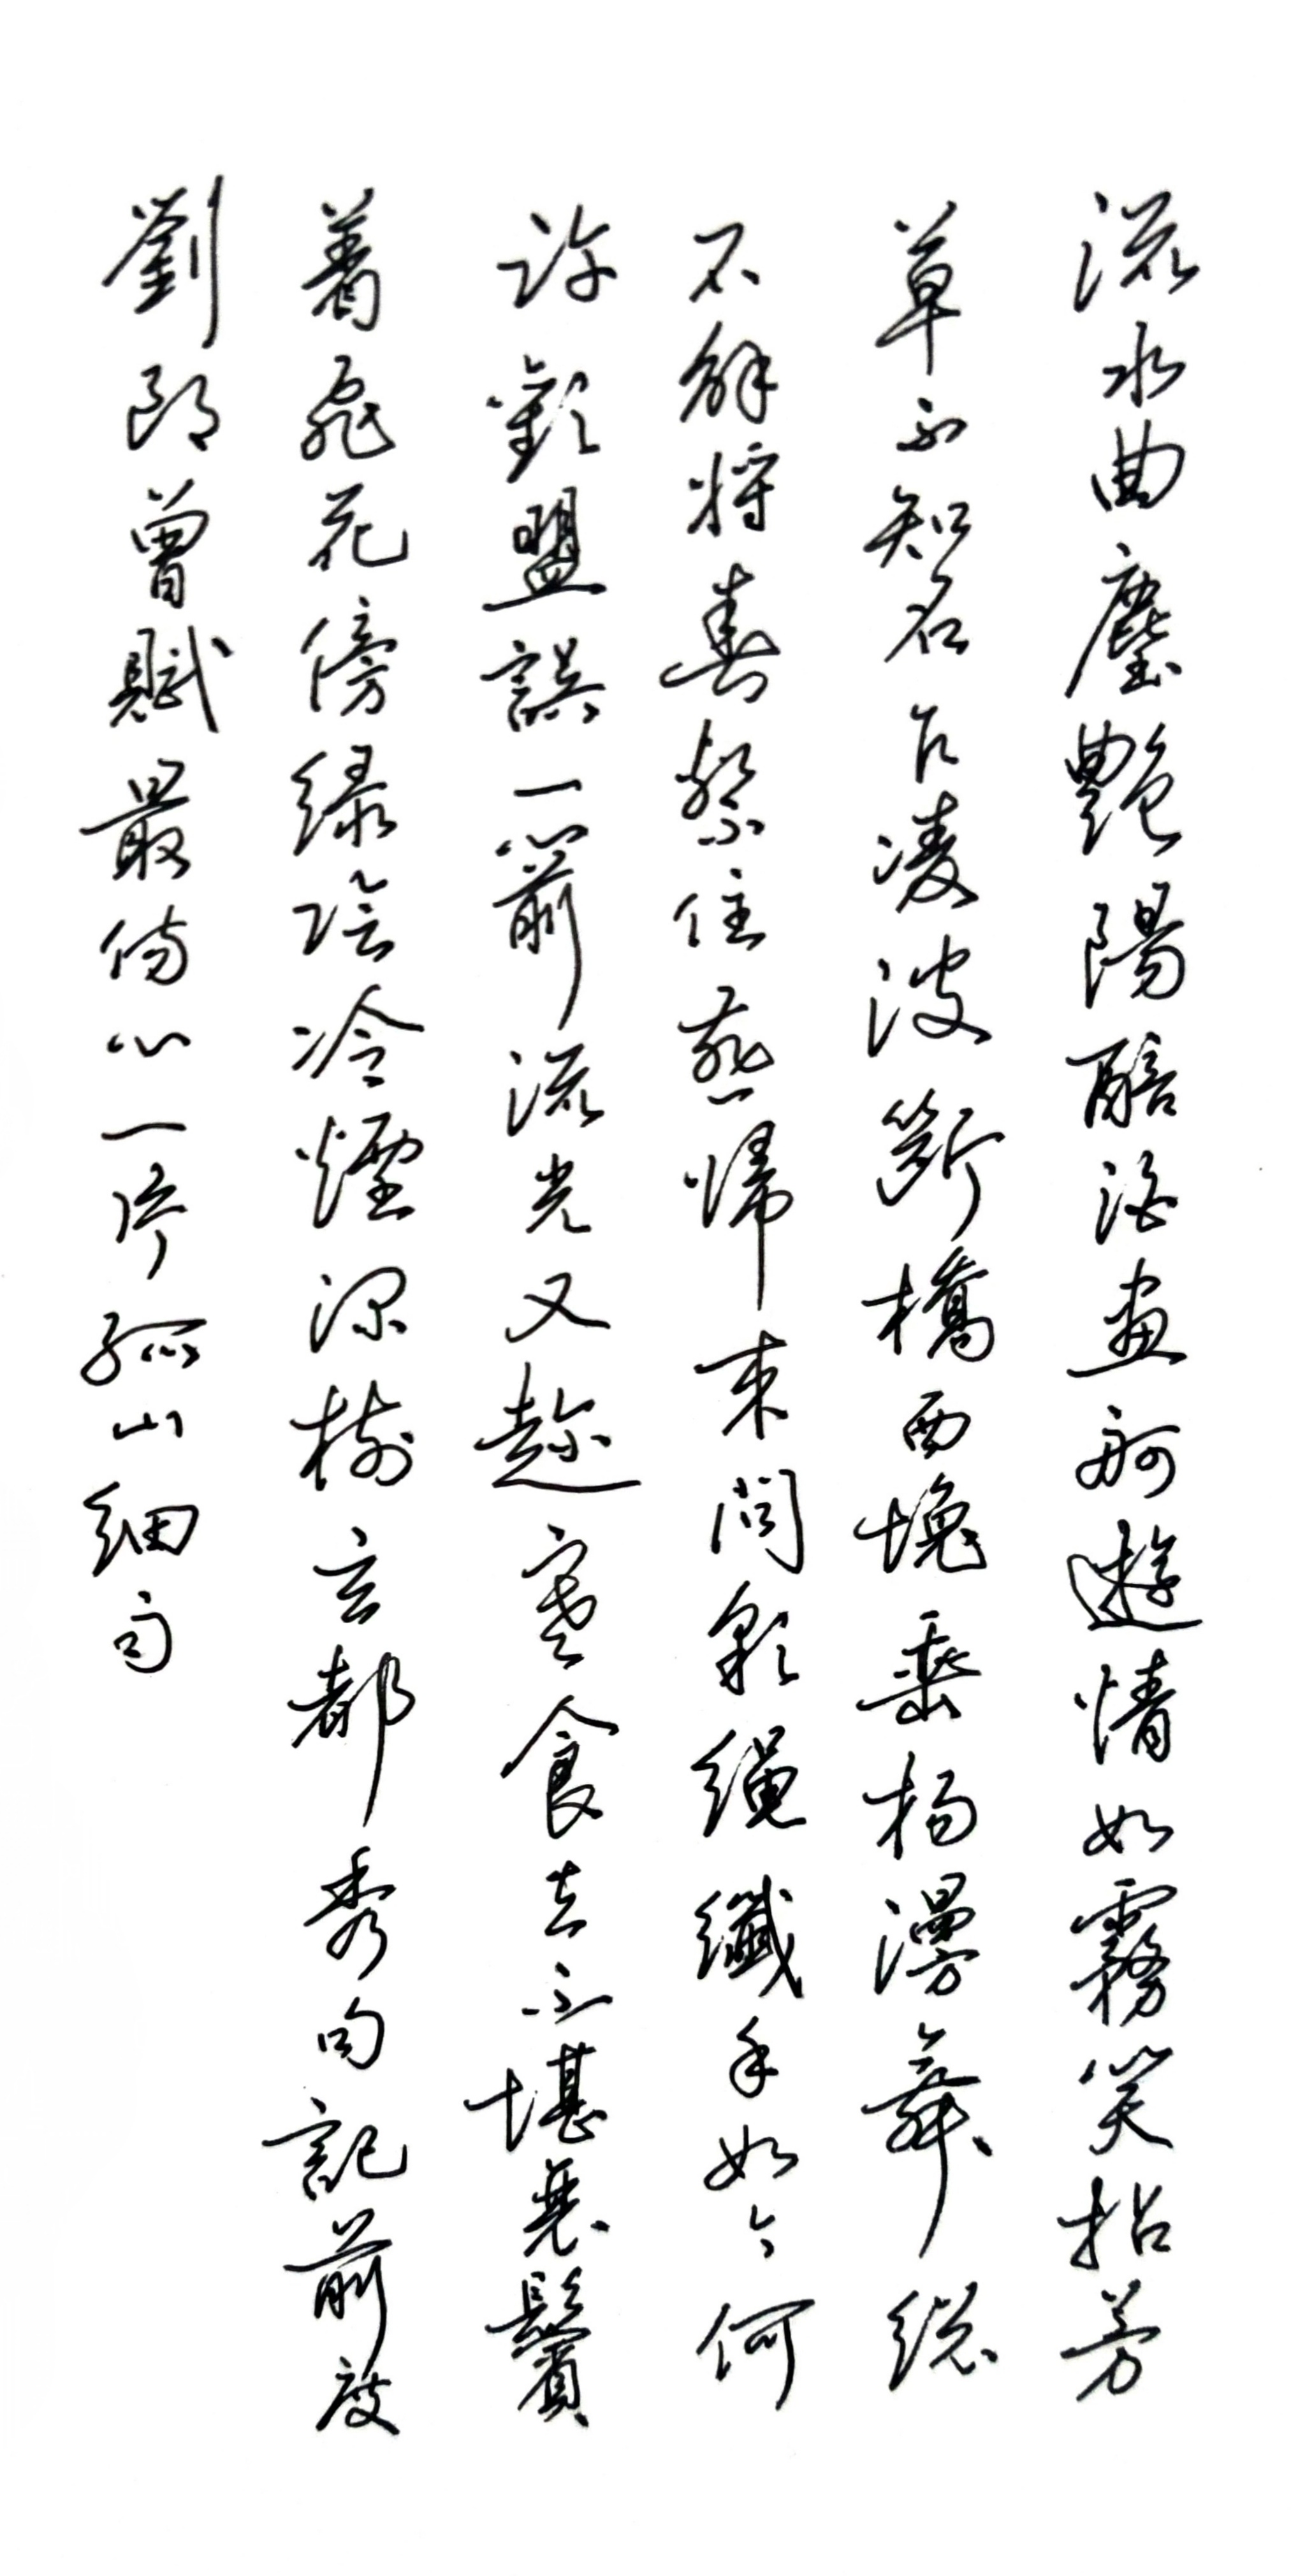 流水曲塵艷陽醅酒畫舸遊情如霧笑拈芳
草不知名乍凌波斷橋西堍垂楊漫舞總
不解將春繫住燕歸來問彩繩纖手如今何
許歡盟誤一箭流光又趁寒食去不堪衰鬢
着飛花傍綠陰冷煙深樹玄都秀句記前度
劉郎曾賦最傷心一片孤山細雨